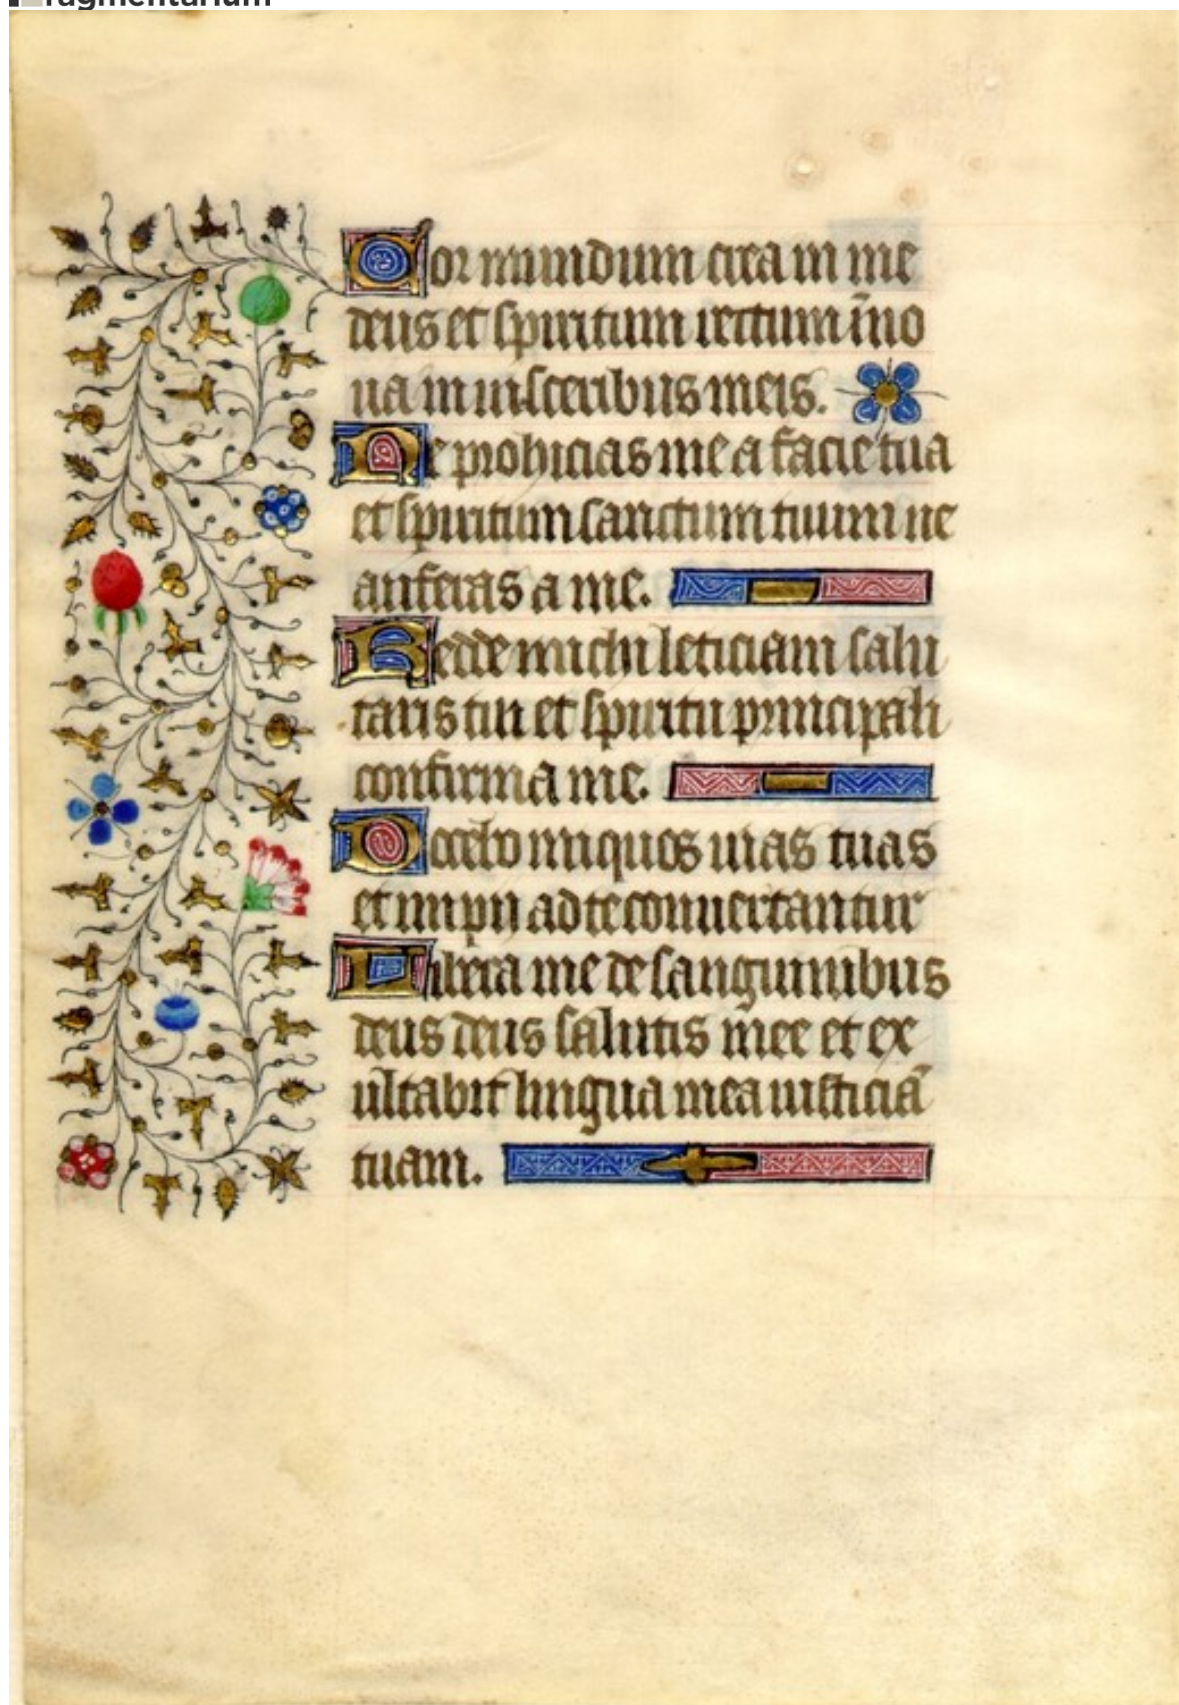 fragmentarium
Cor mundum crea in me
deus et spiritum rectum īno
ua in uisceribus meis.
Ne prohicias me a facie tua
et spiritum sanctum tuum ne
auferas a me.
Redde michi leticiam salu
taris tui et spiritu principali
confirma me.
Docebo iniquos uias tuas
et impii ad te conuertantur
Libera me de sanguinibus
deus deus salutis mee et ex
ultabit lingua mea iusticiā
tuam.